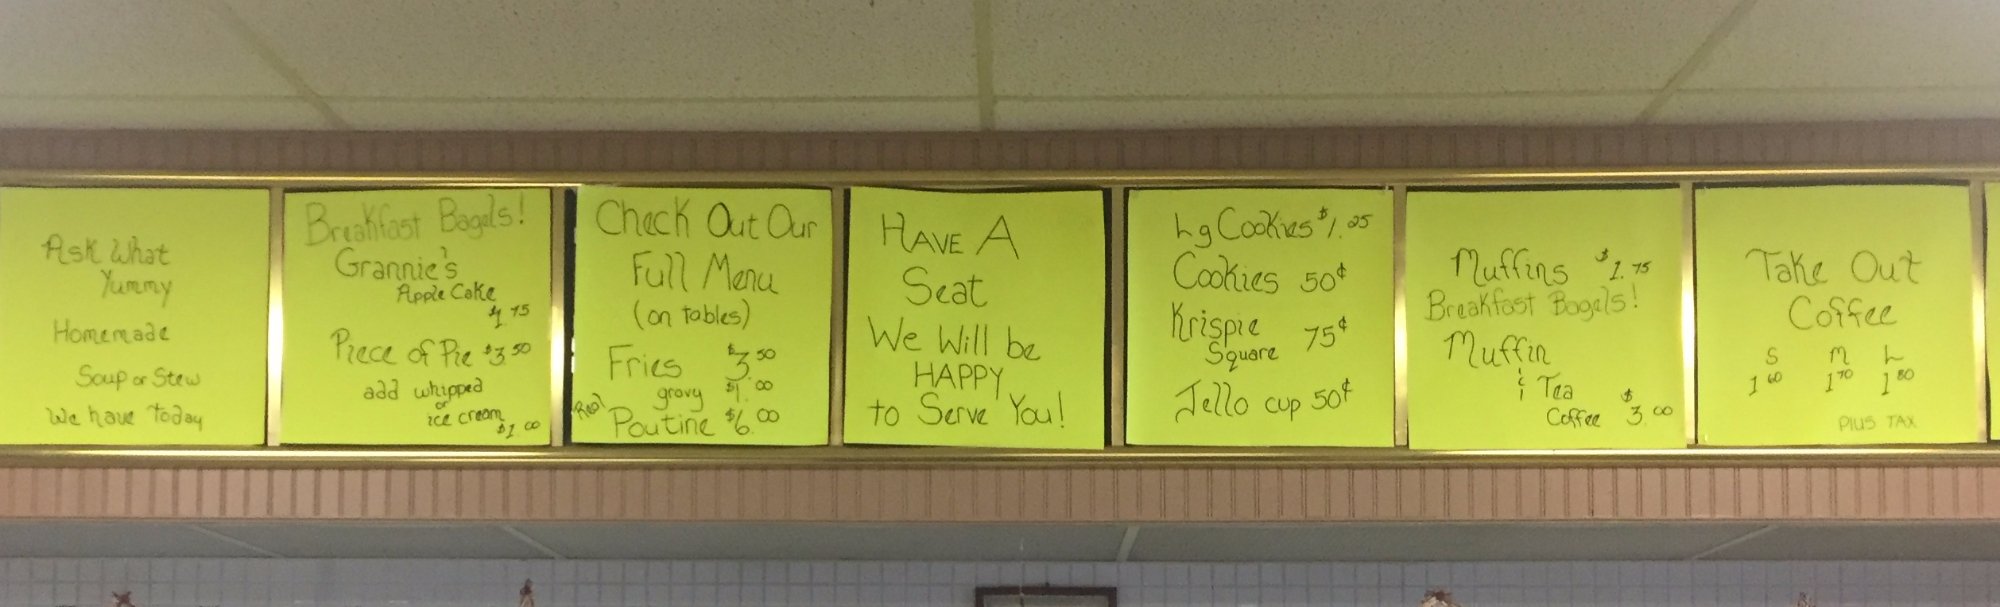 Ask What
Yummy
Homemade
Soup or Stew
We have Today
Breakfast Bagels!
Grannie's
Apple Cake
$1.75
Piece of Pie $3.50
add whipped
or
ice cream
$1.00
Check Out Our
Full Menu
(on tables)
Fries $3.50
gravy $1.00
Real
Poutine $6.00
HAVE A
Seat
We Will be
HAPPY
to Serve You!
Lg Cookies $1.25
Cookies 50¢
Krispie
Square 75¢
Jello cup 50¢
Muffins $1.75
Breakfast Bagels!
Muffin
& Tea
Coffee $3.00
Take Out
Coffee
S M L
1.60 1.70 1.80
PLUS TAX